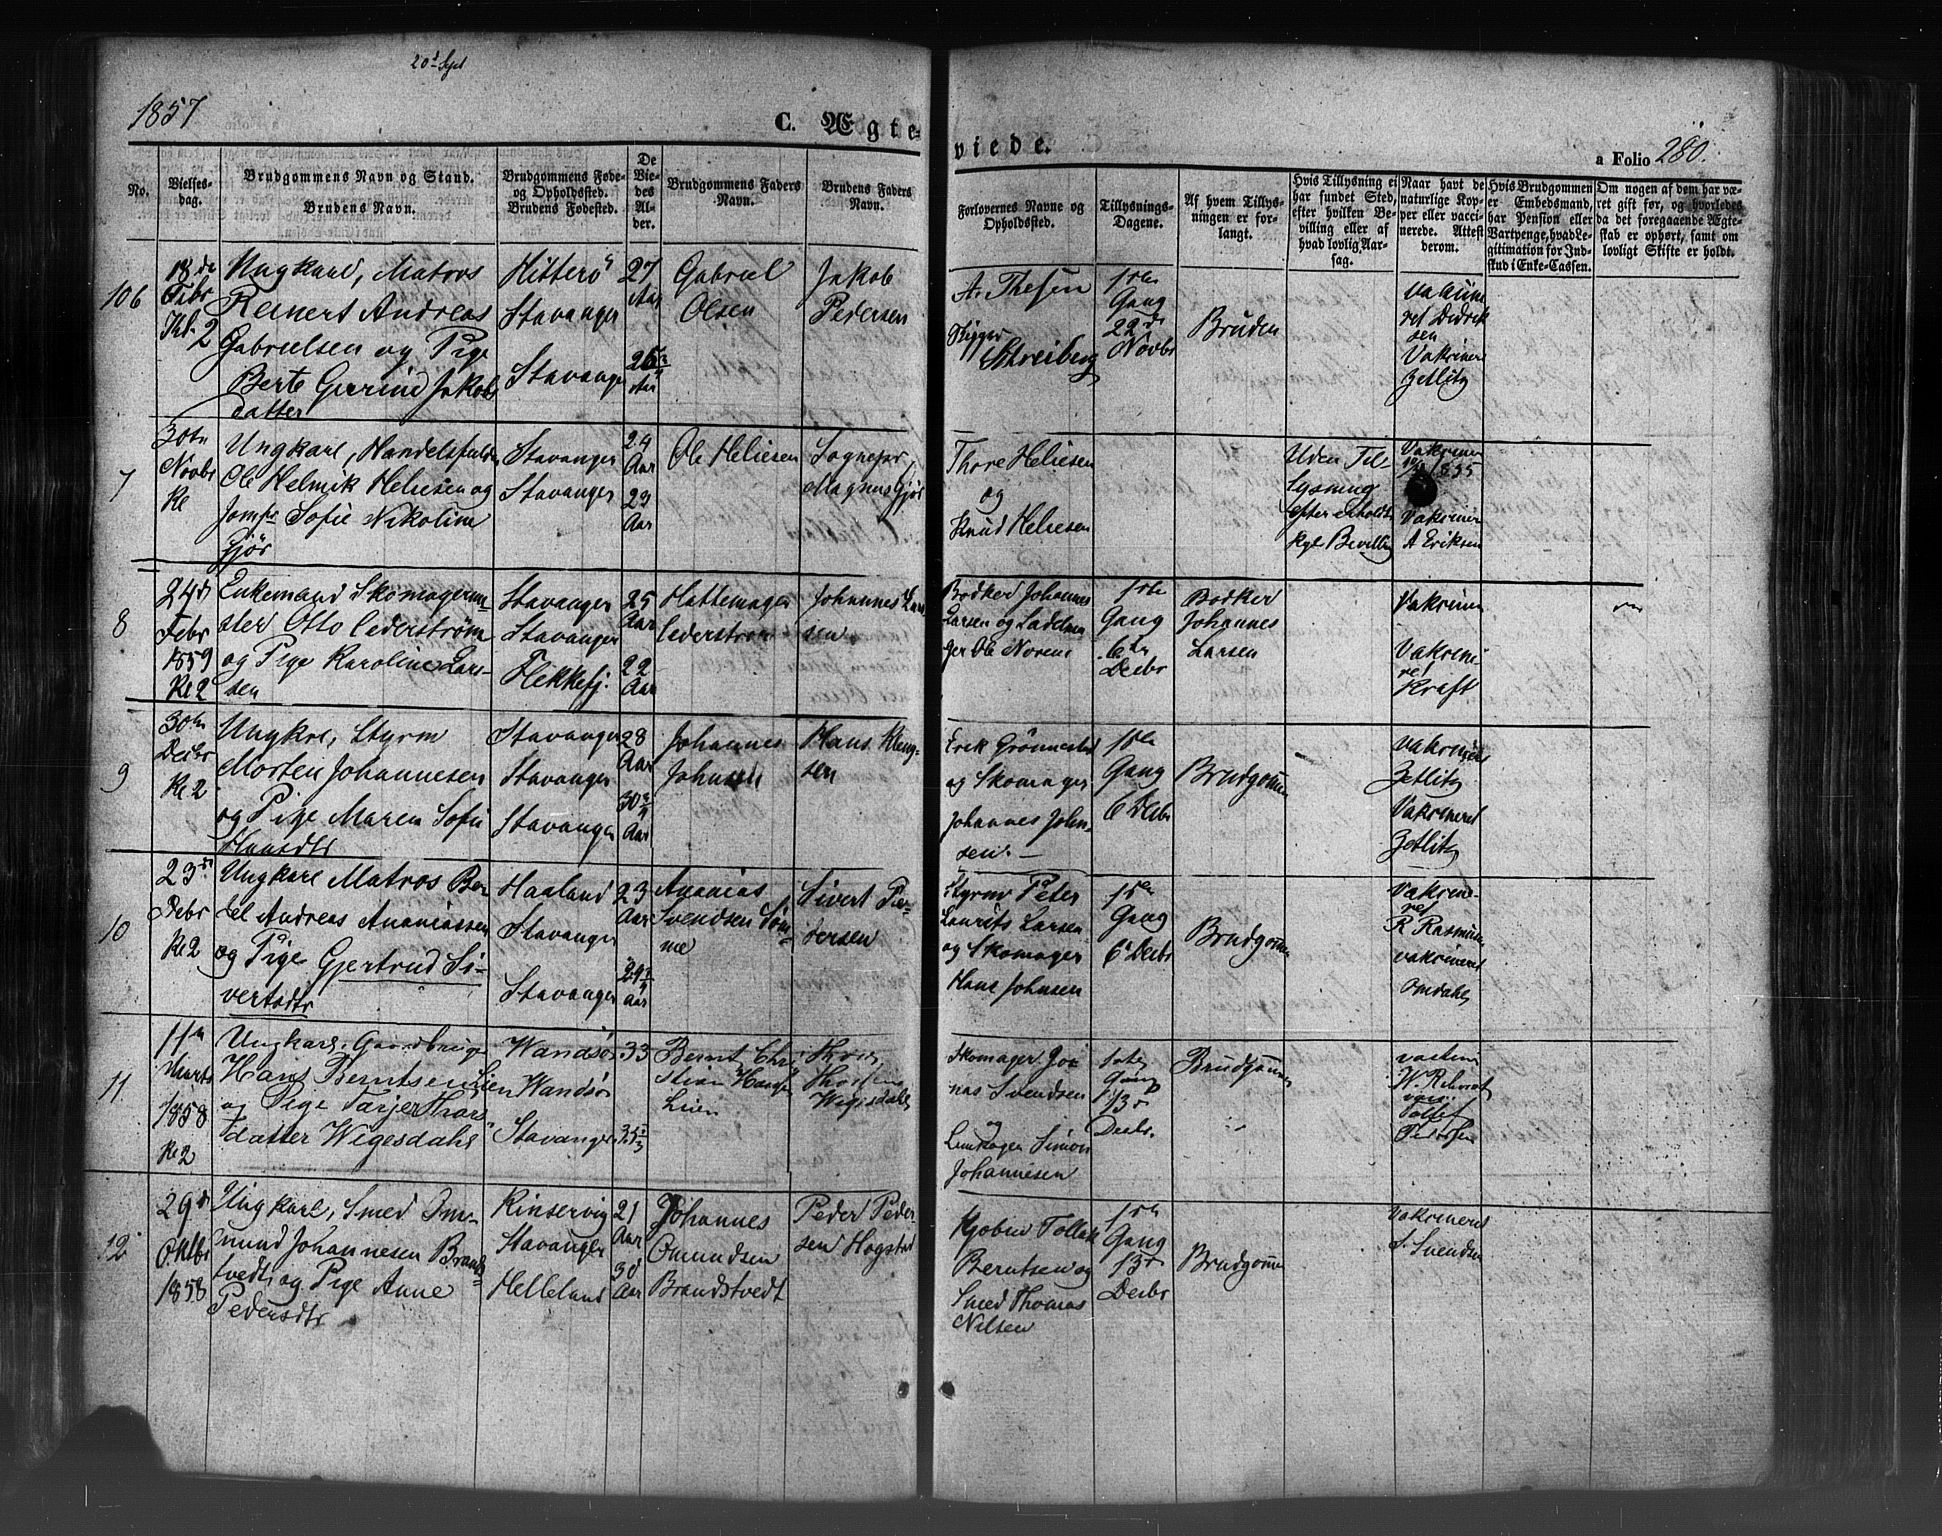 20d Sept
1857
C. Ægteviede.
a Folio 280.
No.
Vielsesdag.
Brudgommens Navn og Stand.
Brudens Navn.
Brudgommens Føde- og Opholdssted.
Brudens Fødested.
De Viedes Alder.
Brudgommens Faders Navn.
Brudens Faders Navn.
Forlovernes Navne og Opholdssted.
Tillysnings-Dagene.
Af hvem Tillysningen er forlangt.
Hvis Tillysning ei har fundet Sted, efter hvilken Bevilling eller af hvad lovlig Aarsag.
Naar havt de naturlige Kopper eller vaccinerede. Attest derom.
Hvis Brudgommen er Embedsmand, har Pension eller Vartpenge, hvad Legitimation for Indskud i Enke-Cassen.
Om nogen af dem har været gift før, og hvorledes da det foregaaende Ægteskab er ophørt, samt om lovligt Skifte er holdt.
106
18de Febr Kl. 2
Ungkarl, Matros
Reinert Andreas
Gabrielsen og Pige
Berte Gurine Jakobs
datter
Hitterö
Stavanger
Stavanger
27 Aar
Aar
Gabriel
Olsen
Jakob
Pedersen
A. Thesen
Skipper
Streiberg
1ste
Gang
22de
Novbr
Bruden
Vakcine
ret Didrik
sen
Vakciner
Zetlitz
7
30te
Novbr
Kl
Ungkarl, Handelsfuld
Ole Helmik Heliesen og
Jomfr Sofie Nikoline
Gjör
Stavanger
Stavanger
24
Aar
23
Aar
Ole Heliesen
Sognepr.
Magnus Gjör
Thore Heliesen
og
Knud Heliesen
Uden Til
lysning
efter erholdt
kgl Bevilling
Vakciner
1835
Vakciner
A Eriksen
8
24de
Febr
1859
Kl 2
Enkemand Skomagerme
ster Otto Cederstrøm
og Pige Karoline Lars-
sen
Stavanger
Stavanger
Flekkefj.
25
Aar
22
Aar
Hattemager
Cederstrøm
Johannes Lar
sen
Bödker Johannes
Larsen og Sadelma
ger Ole Norem
1ste
Gang
6te
Decbr
Bödker
Johannes
Larsen
Vakciner
Vakcine
ret
Kraft
9
30te
Decbr
Kl 2
Ungkrl, Styrm
Morten Johannesen
og Pige Maren Sofie
Hansdtr
Stavanger
Stavanger
Stavanger
28
Aar
30
Aar
Johannes
Johnsen
Hans Kleng-
sen
Erik Grönnestad
og Skomager
Johannes John-
sen. —
1ste
Gang
6 Decbr
Brudgommen
Vakcineret
Zetlitz
Vakcineret
Zetlitz
10
23de
Debr
Kl 2
Ungkarl Matros Ber
tel Andreas Ananiassen
og Pige Gjertrud Si-
vertsdtr
Haaland
Stavanger
Stavanger
23
Aar
29
Aar
Ananias
Svendsen Söm-
me
Sivert Pe-
dersen
Styrm Peter
Laurits Larsen
og Skomager
Hans Johnsen
1ste
Gang
6 Decbr
Brudgommen
Vakcine-
ret
R Rasmuss
vakcineret
Omdahl
11
11te
Marts
1858
Kl 2
Ungkarl, Gaardbruger
Hans Berntsen Lien
og Pige Tarjer Thors
datter Wigesdahl
Wandsö
Wandsö
Stavanger
33
35
Bernt Chri
stian Hansen
Lien
Thor
Thorsen
Wigesdahl
Skomager Jo
nas Svendsen
og
Simon
Johannesen
1ste
Gang
13de
Decbr.
Brudgommen
W.
vacc.
Tollef
Pedersen
12
29de
Oktbr
1858
Ungkarl, Smed Om-
mund Johannesen Brand
tvedt og Pige Anne
Pedersdtr
Kinservig
Stavanger
Helleland
21
Aar
30
Aar
Johannes
Omundsen
Brandstvedt
Peder Peder
sen Hogstad
Kjöbm Tollak
Berntsen og
Smed Thomas
Nilsen
1ste
Gang
13de
Decbr
Brudgommen
Vakcineret
S. Svendsen